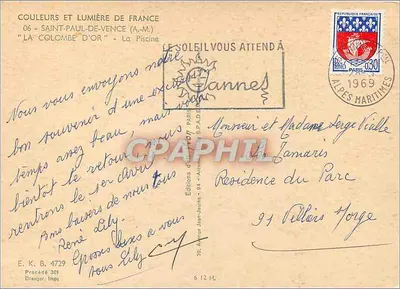 COULEURS ET LUMIÈRE DE FRANCE
06 - SAINT-PAUL-DE-VENCE (A.-M.)
"LA COLOMBE D'OR" - La Piscine
LE SOLEIL VOUS ATTEND A
Cannes
REPUBLIQUE FRANÇAISE
0,30
PARIS
1969
ALPES MARITIMES
Nous vous envoyons notre
bon souvenir d'une
temps assez beau, mais
bientôt le retour, nous
rentrons le 1er Avril
Bons baisers de nous tous
René Lily.
Grosses bises a vous
tous Lily
Monsieur et Madame Serge Vialle
Le Tamaris
Residence du Parc
91 Villiers s/orge
CPARAMA
E. K. B. 4729
Procédé 301
Draeger, Imp.
6 12 1C